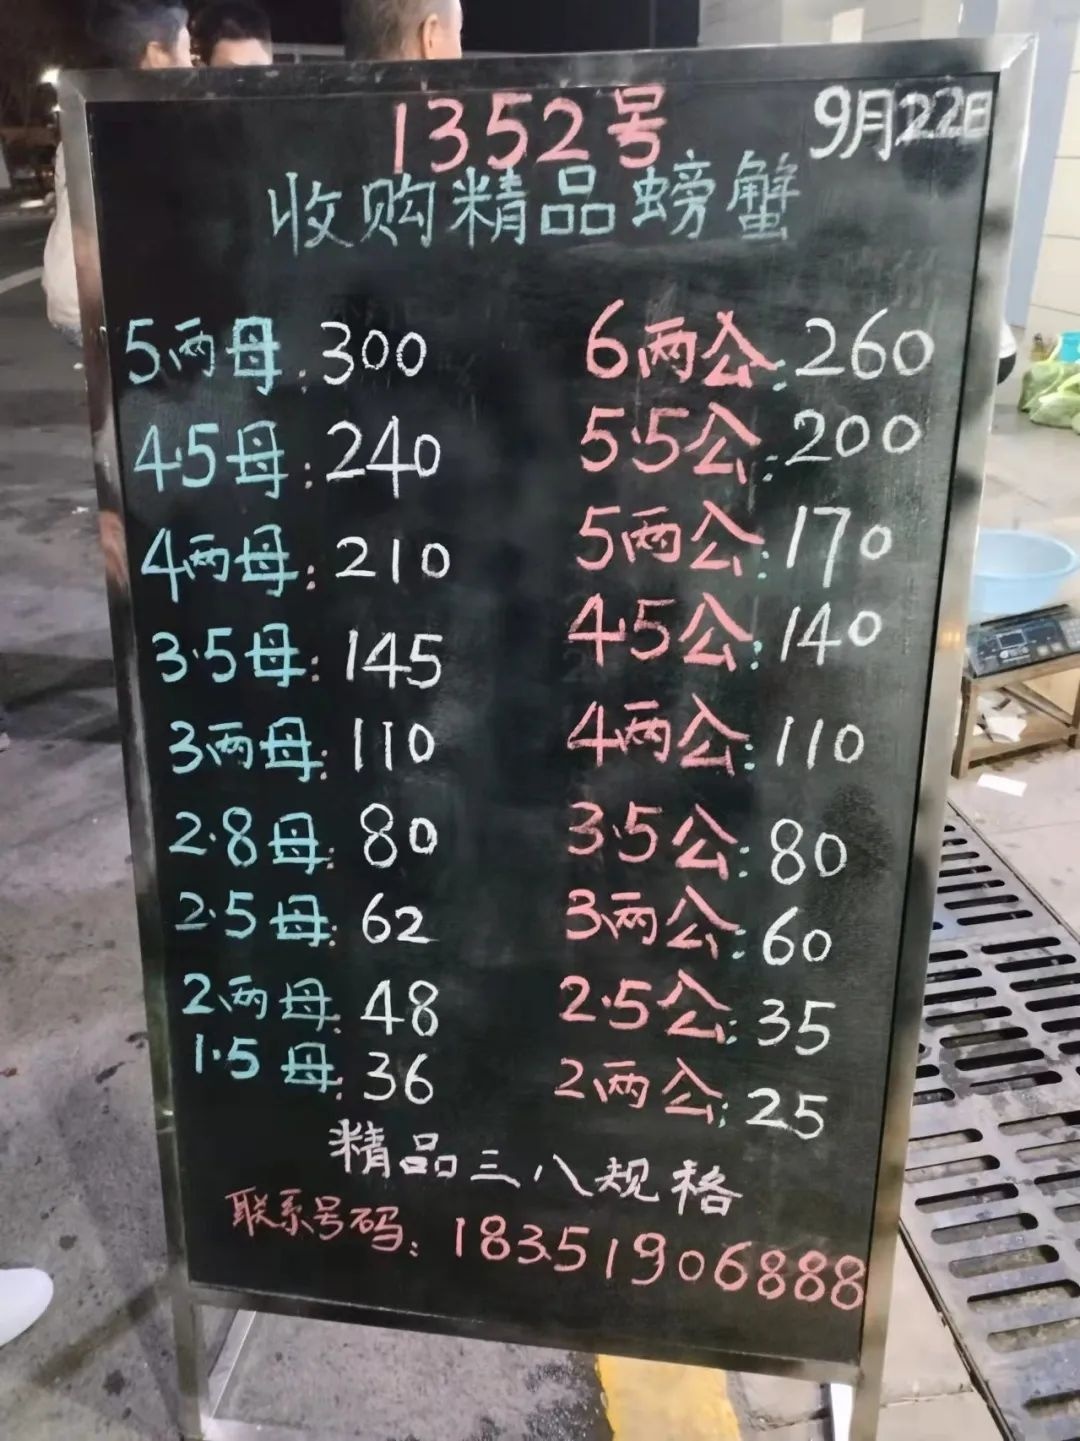 1352号 9月22日
收购精品螃蟹
5两母:300 6两公:260
4.5母:240 5.5公:200
4两母:210 5两公:170
3.5母:145 4.5公:140
3两母:110 4两公:110
2.8母:80 3.5公:80
2.5母:62 3两公:60
2两母:48 2.5公:35
1.5母:36 2两公:25
精品三八规格
联系号码:18351906888